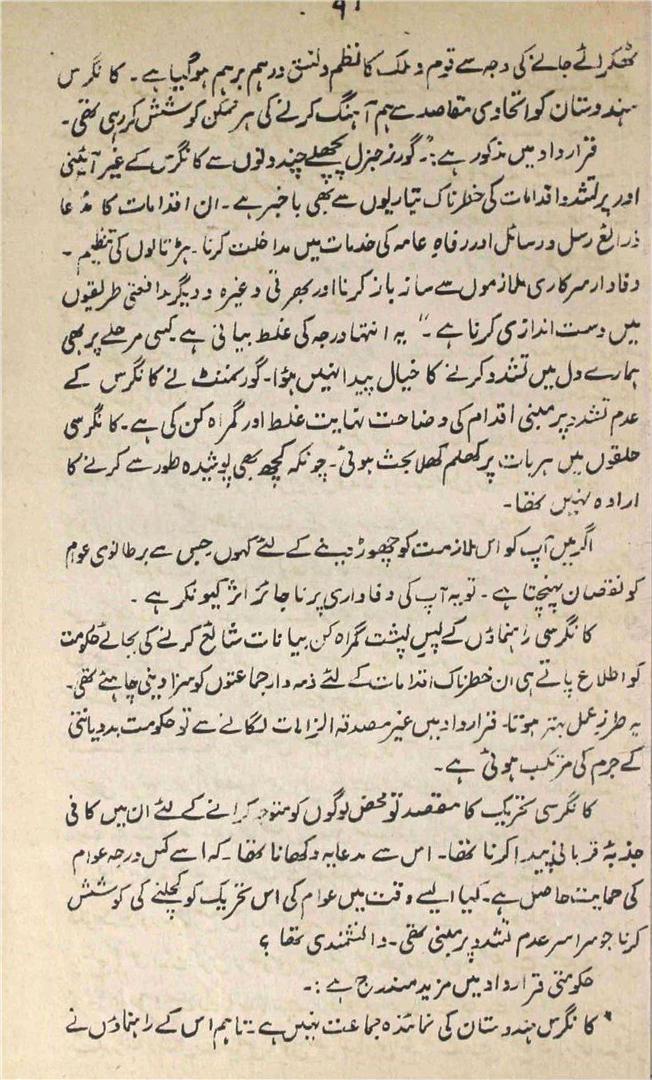 ۹۱
ٹھکرائے جانے کی وجہ سے قوم و ملک کا نظم و نسق درہم برہم ہو گیا ہے۔ کانگرس
ہندوستان کو اتحادی مقاصد سے ہم آہنگ کرنے کی ہر ممکن کوشش کر رہی تھی۔
قرارداد میں مذکور ہے:۔ "گورنر جنرل پچھلے چند دنوں سے کانگرس کے غیر آئینی
اور پر تشدد اقدامات کی خطرناک تیاریوں سے بھی باخبر ہے۔ ان اقدامات کا مدعا
ذرائع رسل و رسائل اور رفاہِ عامہ کی خدمات میں مداخلت کرنا۔ ہڑتالوں کی تنظیم۔
وفادار سرکاری ملازموں سے ساز باز کرنا اور بھرتی وغیرہ و دیگر مدافعتی طریقوں
میں دست اندازی کرنا ہے۔" یہ انتہا درجہ کی غلط بیانی ہے کسی مرحلے پر بھی
ہمارے دل میں تشدد کرنے کا خیال پیدا نہیں ہؤا۔ گورنمنٹ نے کانگرس کے
عدم تشدد پر مبنی اقدام کی وضاحت نہایت غلط اور گمراہ کن کی ہے۔ کانگرسی
حلقوں میں ہر بات پر کھلم کھلا بحث ہوئی۔ چونکہ کچھ بھی پوشیدہ طور سے کرنے کا
ارادہ نہیں تھا۔
اگر میں آپ کو اس ملازمت کو چھوڑ دینے کے لئے کہوں جس سے برطانوی عوام
کو نقصان پہنچتا ہے۔ تو یہ آپ کی وفاداری پر ناجائز اثر کیونکر ہے۔
کانگرسی راہنماؤں کے پسِ پشت گمراہ کن بیانات شائع کرنے کی بجائے حکومت
کو اطلاع پاتے ہی ان خطرناک اقدامات کے لئے ذمہ دار جماعتوں کو سزا دینی چاہئے تھی۔
یہ طرزِ عمل بہتر ہوتا۔ قرارداد میں غیر مصدقہ الزامات لگانے سے تو حکومت بددیانتی
کے جرم کی مرتکب ہوئی ہے۔
کانگرسی تحریک کا مقصد تو محض لوگوں کو متوجہ کرانے کے لئے ان میں کافی
جذبۂ قربانی پیدا کرنا تھا۔ اس سے مدعا یہ دکھانا تھا۔ کہ اسے کس درجہ عوام
کی حمایت حاصل ہے۔ کیا ایسے وقت میں عوام کی اس تحریک کو کچلنے کی کوشش
کرنا جو سراسر عدم تشدد پر مبنی تھی۔ دانشمندی تھا؟
حکومتی قرارداد میں مزید مندرج ہے:۔
"کانگرس ہندوستان کی نمائندہ جماعت نہیں ہے۔ تاہم اس کے راہنماؤں نے